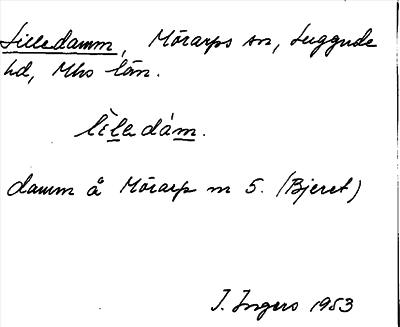 Lilledamm, Mörarps sn, Luggude
hd, Mhs län.
lìledám.
damm å Mörarp nr 5. (Bjeret)
I. Ingers 1953